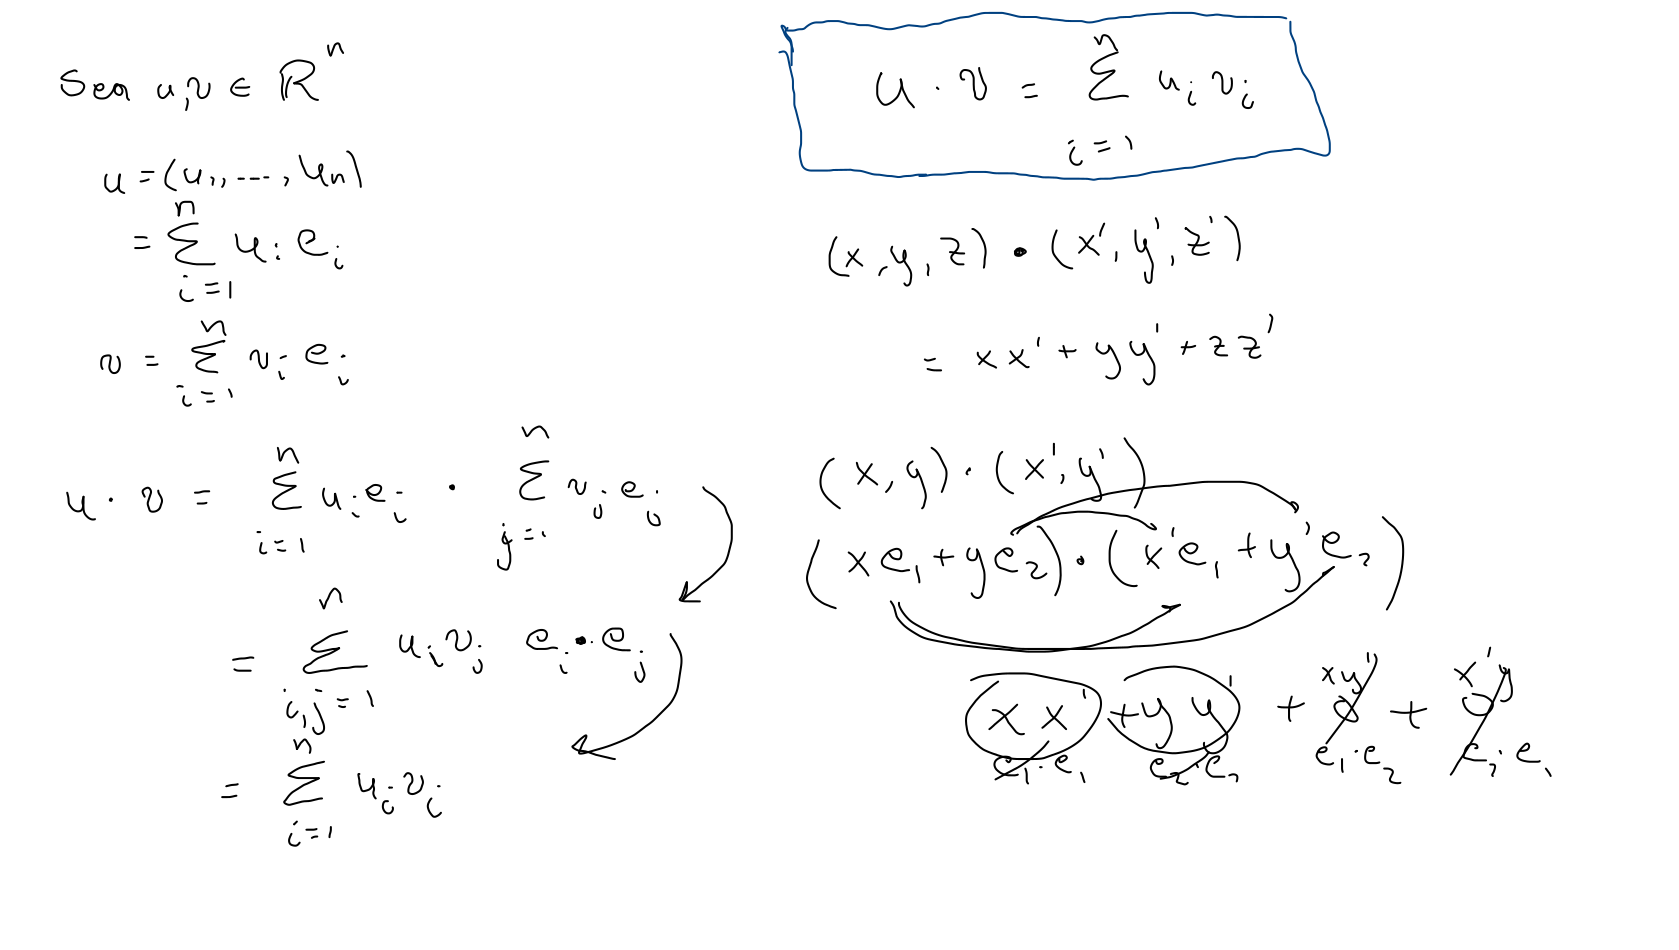 Sea u,v ∈ ℝⁿ
u = (u₁, ..., uₙ)
= ∑_{i=1}^{n} u_i e_i
v = ∑_{i=1}^{n} v_i e_i
u · v = ∑_{i=1}^{n} u_i e_i · ∑_{j=1}^{n} v_j e_j
= ∑_{i,j=1}^{n} u_i v_j e_i · e_j
= ∑_{i=1}^{n} u_i v_i
u · v = ∑_{i=1}^{n} u_i v_i
(x, y, z) · (x', y', z')
= xx' + yy' + zz'
(x, y) · (x', y')
(xe₁ + ye₂) · (x'e₁ + y'e₂)
xy' x'y
xx' + yy' + 0 + 0
e₁·e₁ e₂·e₂ e₁·e₂ e₂·e₁